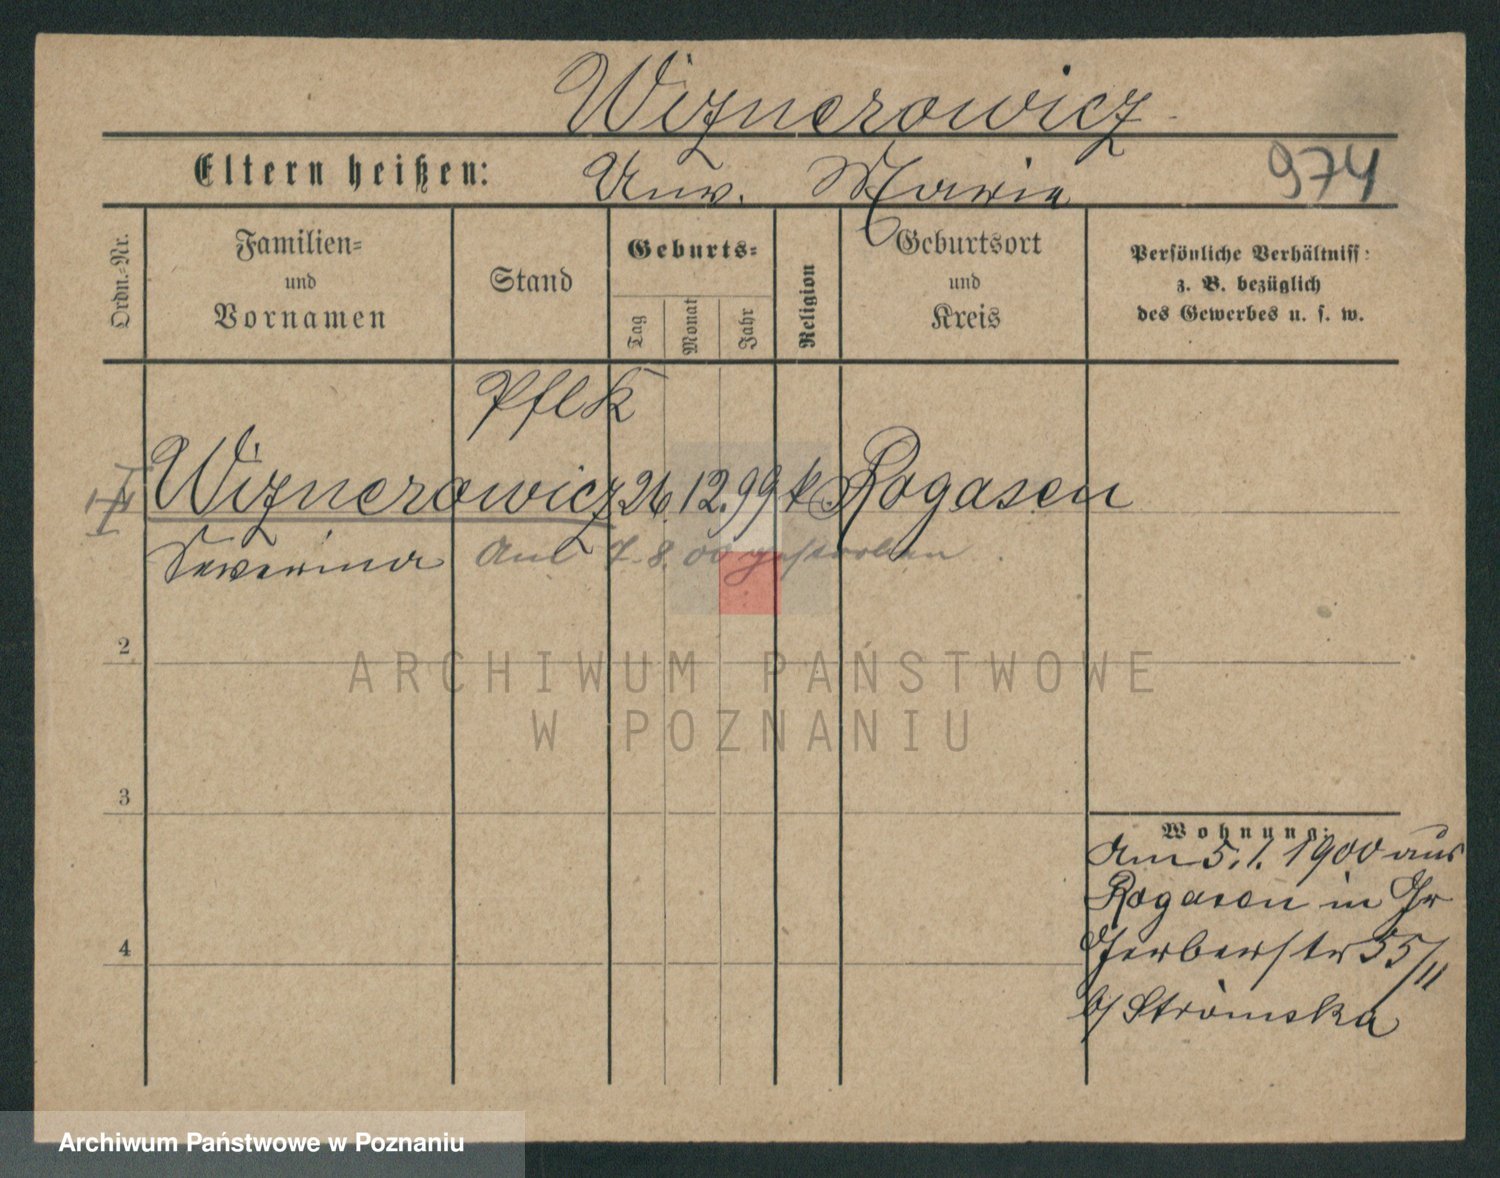 Wiznerowicz
Eltern heißen: Unv. Marie 974
Ordn.=Nr.
Familien=
und
Vornamen
Stand
Geburts=
Tag
Monat
Jahr
Religion
Geburtsort
und
Kreis
Persönliche Verhältniss:
z. B. bezüglich
des Gewerbes u. s. w.
Pflk
Wiznerowicz 26. 12. 99 k Rogasen
Severina Am 7. 8. 00 gestorben.
2
ARCHIWUM PAŃSTWOWE
W POZNANIU
3
Wohnung:
Am 5. 1. 1900 aus
Rogasen in Gr
Gerberstr 55/II
b/ Stromska
4
Archiwum Państwowe w Poznaniu